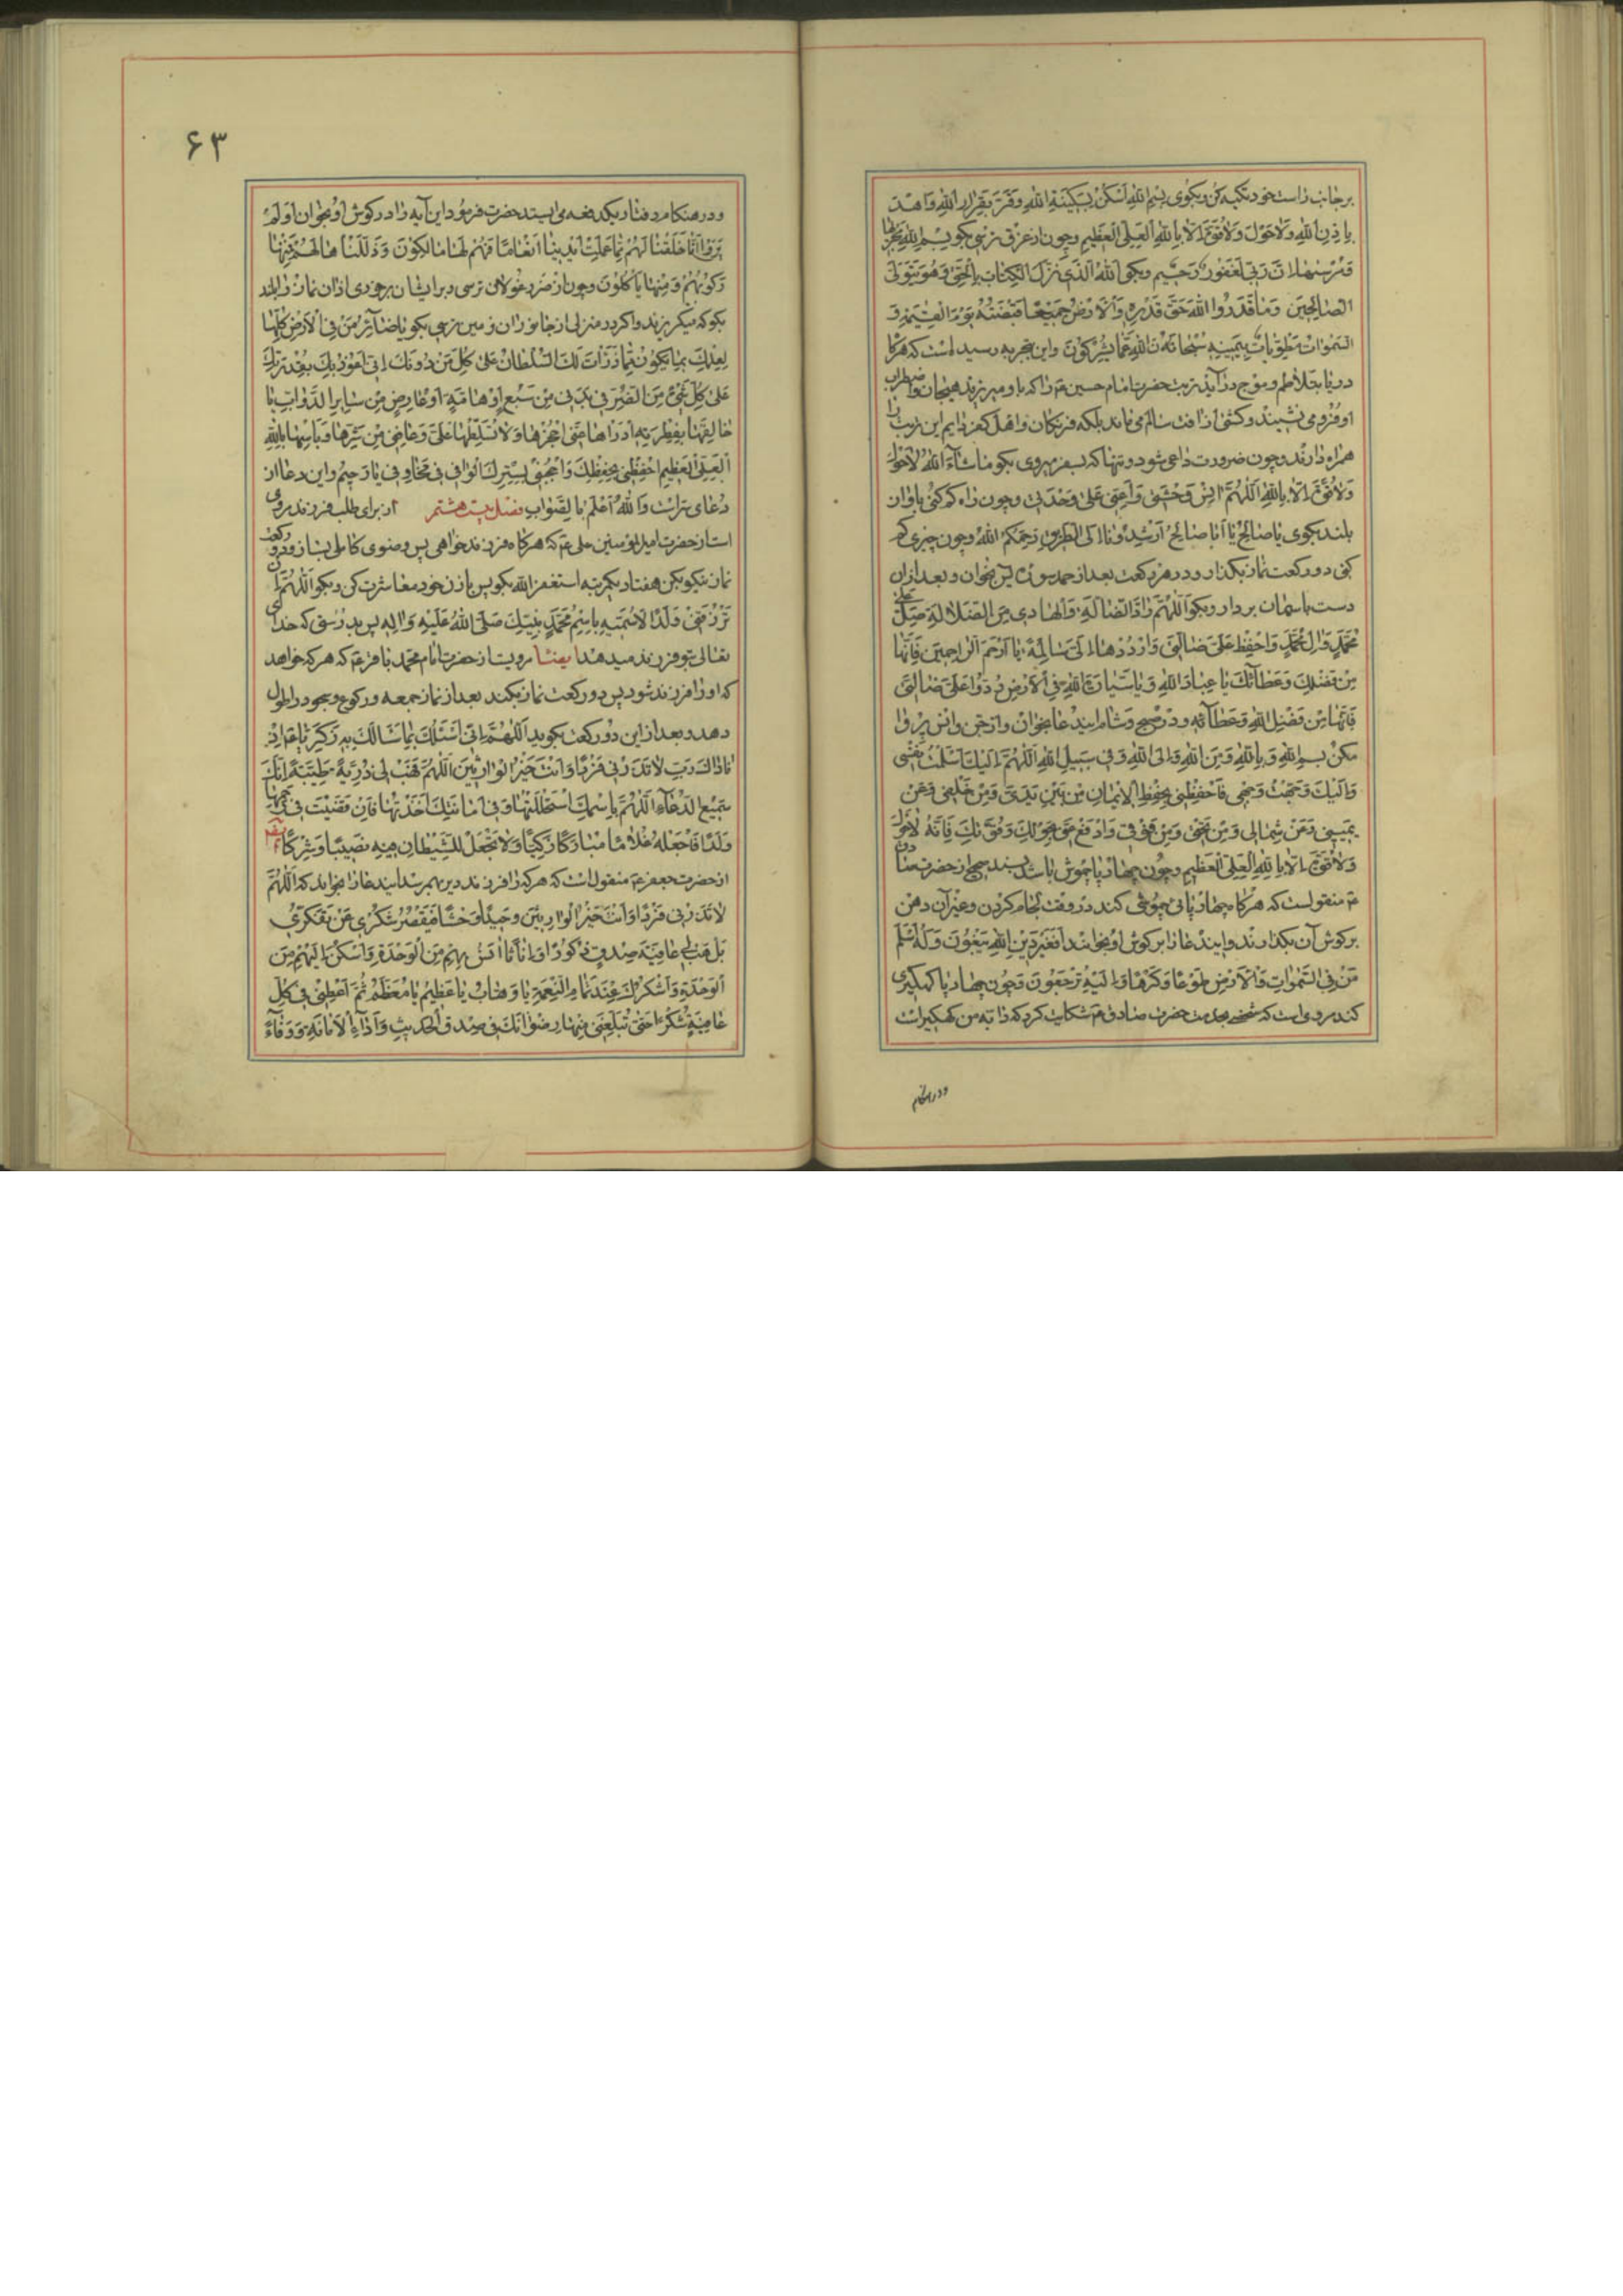 بر جانب راست خود تکیه کن و بگوی بسم الله اسکن بسکینة الله و قر بقرار الله و اهد
باذن الله و لا حول و لا قوة الا بالله العلی العظیم و چون از غرق ترسی بگو بسم الله مجریها
و مرسیها ان ربی لغفور رحیم و بگو الله الذی نزل الکتاب بالحق و هو یتولی
الصالحین و ما قدروا الله حق قدره و الارض جمیعا قبضته یوم القیمة و
السموات مطویات بیمینه سبحانه و تعالی عما یشرکون و این بتجربه رسیده است که هرگاه
دریا بتلاطم و موج در آید تربت حضرت امام حسین ع را که باو میریزند هیجان و اضطراب
او فرو می نشیند و کشتی از آفت سالم می ماند بلکه فرنگان و اهل کفر دایم این تربت را
همراه دارند و چون ضرورت داعی شود و تنها که بسفر میروی بگو ما شاء الله لا حول
و لا قوة الا بالله اللهم آنس وحشتی و اعنی علی وحدتی و چون راه گم کنی باواز
بلند بگوی یا صالح یا ابا صالح ارشدونا الی الطریق رحمکم الله و چون چیزی گم
کنی دو رکعت نماز بگذار و در هر رکعت بعد از حمد سوره یس بخوان و بعد از ان
دست باسمان بردار و بگو اللهم راد الضالة و الهادی من الضلالة صل علی
محمد و آل محمد و احفظ علی ضالتی و ارددها الی سالمة یا ارحم الراحمین فانها
من فضلک و عطائک یا عباد الله و یا سیارة الله فی الارض ردوا علی ضالتی
فانها من فضل الله و عطائه و در صبح و شام این دعا بخوان و از جن و انس پروا
مکن بسم الله و بالله و من الله و الی الله و فی سبیل الله اللهم الیک اسلمت نفسی
و الیک وجهت وجهی فاحفظنی بحفظ الایمان من بین یدی و من خلفی و عن
یمینی و عن شمالی و من تحتی و من فوقی و ادفع عنی بحولک و قوتک فانه لا حول
و لا قوة الا بالله العلی العظیم و چون چهارپا چموش باشد بسند صحیح از حضرت صادق
ع منقولست که هرگاه چهارپائی چموشی کند در وقت لجام کردن و غیر آن دهن
بر گوش آن بگذارند و این دعا را بر گوش او بخوانند افغیر دین الله یبغون و له اسلم
من فی السموات و الارض طوعا و کرها و الیه ترجعون و چون چهارپا کمگیری
کند مروی است که شخصی بخدمت حضرت صادق ع شکایت کرد که دابه من کمگیر است
و در هنگام
۶۳
و در هنگام رفتار یکدفعه می ایستد حضرت فرمود این آیه را در گوش او بخوان اولم
یروا انا خلقنا لهم مما عملت ایدینا انعاما فهم لها مالکون و ذللناها لهم فمنها
رکوبهم و منها یاکلون و چون از ضرر غولان ترسی در اثنای برخوری اذان نماز را بلند
بگو که میگریزند و اگر در منزلی از جانوران زمین ترسی بگو یا ذاری من فی الارض کلها
لعلمک بما یکون مما ذرات لک السلطان علی کل من دونک انی اعوذ بک بقدرتک
علی کل شیء من الضر فی بدنی من سبع او هامة او عارض من سایر الدواب یا
خالقها بفطرته ادراها عنی احجزها و لا تسلطها علی و عافنی من شرها و باسها یا الله
العلی العظیم احفظنی بحفظک و احجبنی بسترک الوافی فی مخاوفی یا رحیم و این دعا از
دعای تراث و الله اعلم بالصواب فصل بیست هشتم از برای طلب فرزند مروی
است از حضرت امیر المؤمنین علی ع که هرگاه فرزند خواهی پس وضوی کامل بساز و دو رکعت
نماز نیکو بکن هفتاد یکمرتبه استغفر الله بگو پس با زن خود معاشرت کن و بگو اللهم ان
ترزقنی ولدا لاسمیه باسم محمد نبیک صلی الله علیه و اله پس بدرستی که خدای
تعالی بتو فرزند میدهد ایضا مرویست از حضرت امام محمد باقر ع که هر که خواهد
که او را فرزند شود پس دو رکعت نماز بکند بعد از نماز جمعه و رکوع و سجود را طول
دهد و بعد از این دو رکعت بگوید اللهم انی اسئلک بما سالک به زکریا اذ
ناداک رب لا تذرنی فردا و انت خیر الوارثین اللهم فهب لی ذریة طیبة انک
سمیع الدعاء اللهم باسمک استحللتها و فی امانتک اخذتها فان قضیت فی رحمها
ولدا فاجعله غلاما مبارکا زکیا و لا تجعل للشیطان فیه نصیبا و شرکا ایضا
از حضرت جعفر ع منقول است که هر که را فرزند دیر بهم رسد این دعا را بخواند که اللهم
لا تذرنی فردا و انت خیر الوارثین وحیدا وحشا فیقصر شکری عن تفکری
بل هب لی عاقبة صدق ذکورا و اناثا انس بهم من الوحدة و اسکن الیهم من
الوحدة و اشکرک عند تمام النعمة یا وهاب یا عظیم یا معظم ثم اعطنی فی کل
عافیة شکرا حتی تبلغنی منها رضوانک فی صدق الحدیث و اداء الامانة و وفاء